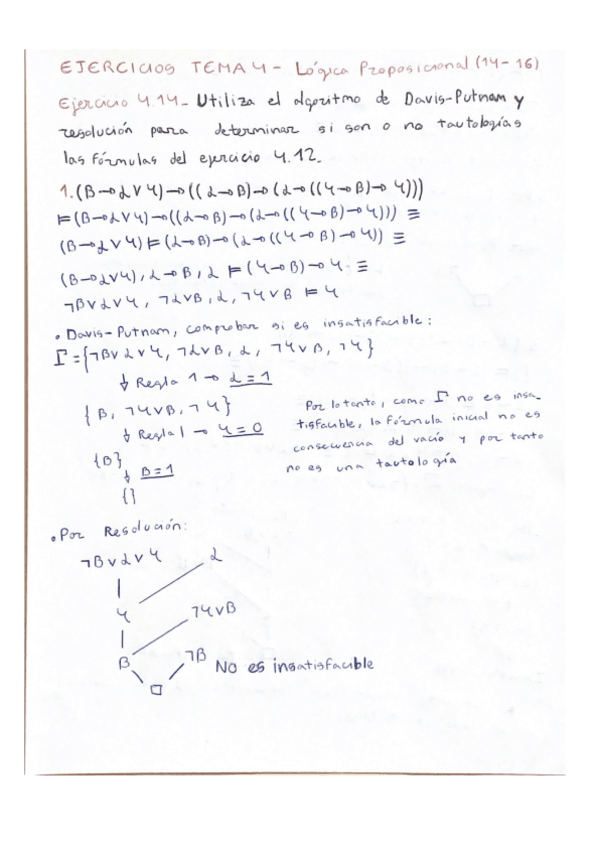 EJERCICIOS TEMA 4 - Lógica Proposicional (14-16)
Ejercicio 4.14- Utiliza el algoritmo de Davis-Putnam y
resolución para determinar si son o no tautologías
las fórmulas del ejercicio 4.12.
1. (β→α∨γ)→((α→β)→(α→((γ→β)→γ)))
⊨(β→α∨γ)→((α→β)→(α→((γ→β)→γ))) ≡
(β→α∨γ)⊨(α→β)→(α→((γ→β)→γ)) ≡
(β→α∨γ), α→β, α ⊨(γ→β)→γ ≡
¬β∨α∨γ, ¬α∨β, α, ¬γ∨β ⊨ γ
• Davis-Putnam, comprobar si es insatisfacible:
Γ={¬β∨α∨γ, ¬α∨β, α, ¬γ∨β, ¬γ}
↓ Regla 1 → α=1
{β, ¬γ∨β, ¬γ}
↓ Regla 1 → γ=0
{β}
↓ β=1
{}
Por lo tanto, como Γ no es insa-
tisfacible, la fórmula inicial no es
consecuencia del vacío y por tanto
no es una tautología
• Por Resolución:
¬β∨α∨γ α
γ ¬γ∨β
β ¬β No es insatisfacible
□